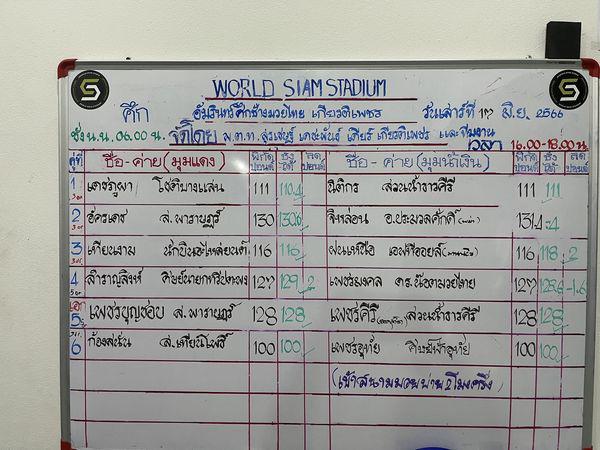 WORLD SIAM STADIUM
ศึก อัมรินทร์ศึกช้างมวยไทย เกียรติเพชร วันเสาร์ที่ 17 มิ.ย. 2566
ชั่ง น.น. 06.00 น. จัดโดย พ.ต.ท. สุรเชษฐ์ เกียรติเพชร และทีมงาน เวลา 16.00-18.00 น.
คู่ที่ ชื่อ-ค่าย (มุมแดง) พิกัด ปอนด์ ชั่งได้ ลด ปอนด์ ชื่อ-ค่าย (มุมน้ำเงิน) พิกัด ปอนด์ ชั่งได้ ลด ปอนด์
1 เดชภูผา โชติบางแสน 111 110.4 นิติกร สวนน้ำธารคีรี 111 111
2 อัครเดช ส.พาราษฎร์ 130 130.6 สิงห์ลอน อ.ประมวลศักดิ์ 131.4
3 เทียนงาม 116 116 ฝนเหนือ 116 118 2
4 สำราญสิงห์ 127 129 2 เพชรมงคล 127 128.6 -1.6
เอก 5 เพชรบุญชอบ ส.พาราษฎร์ 128 128 เพชรคีรี สวนน้ำธารคีรี 128 128
6 ก้องสนั่น ส.เทียนโพธิ์ 100 100 เพชรอุทัย ศิษย์ฟ้าอุทัย 100 100
(เข้าสนามมวยบ่าย 2 โมงครึ่ง)